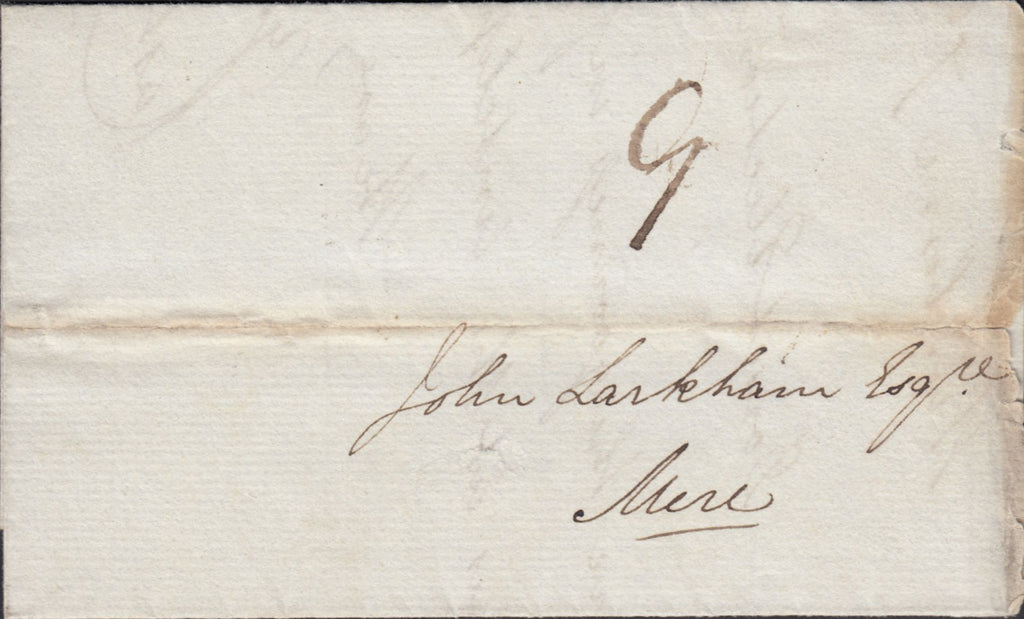 9
John Larkham Esqre.
Mere